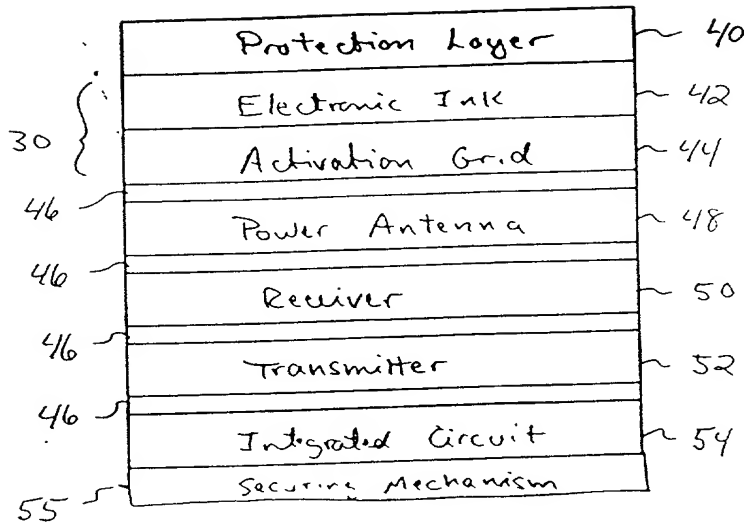 Protection Layer 40
Electronic Ink 42
30
Activation Grid 44
46
Power Antenna 48
46
Receiver 50
46
Transmitter 52
46
Integrated Circuit 54
Securing Mechanism
55